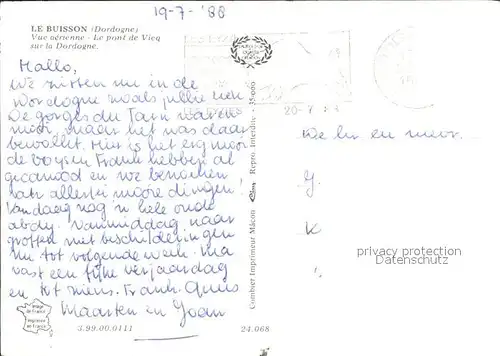 19-7-'88
LE BUISSON (Dordogne)
Vue aérienne - Le pont de Vicq
sur la Dordogne.
Hallo,
We zitten nu in de
Dordogne zoals jullie zien
De gorges du Tarn waren
mooi, maar het was daar
bewolkt. Hier is het erg mooi
de boys en Frank hebben al
gecanood en we bezoeken
allerlei mooie dingen!
Vandaag nog 'n hele oude
abdij. Vanmiddag naar
grotten met beschilderingen
Nu tot volgende week. Ma
vast een fijne verjaardag
en tot ziens. Frank. Guus
Maarten en Joan
image de France
imprimé en France
3.99.00.0111
24.068
Combier Imprimeur Mâcon
Repro. Interdite - 35000
20-7
De hr en mevr.
J.
K
privacy protection
Datenschutz